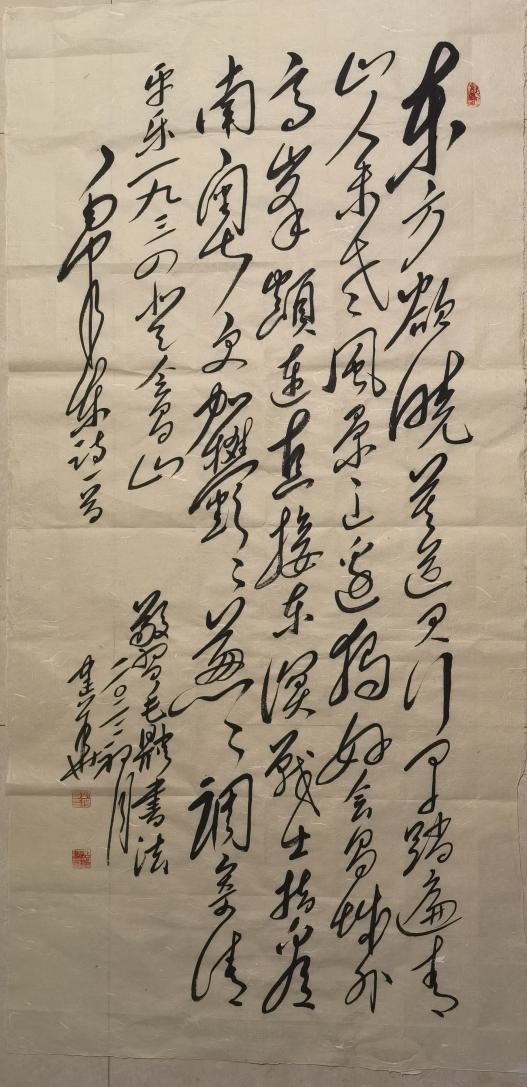 东方欲晓莫道君行早踏遍青
山人未老风景这边独好会昌城外
高峰颠连直接东溟战士指看
南粤更加郁々葱々调寄清
平乐一九三四登会昌山
诗一首
敬习毛体书法
二〇二二初月